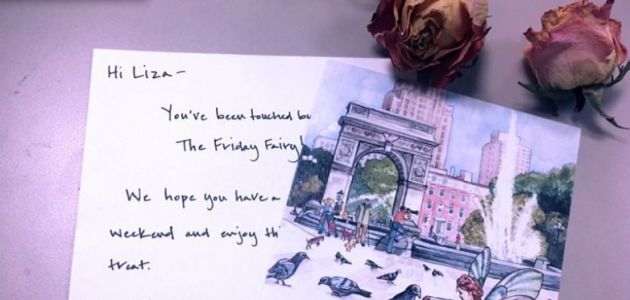 Hi Liza-
You've been touched
The Friday Fairy!
We hope you have a
weekend and enjoy
treat.